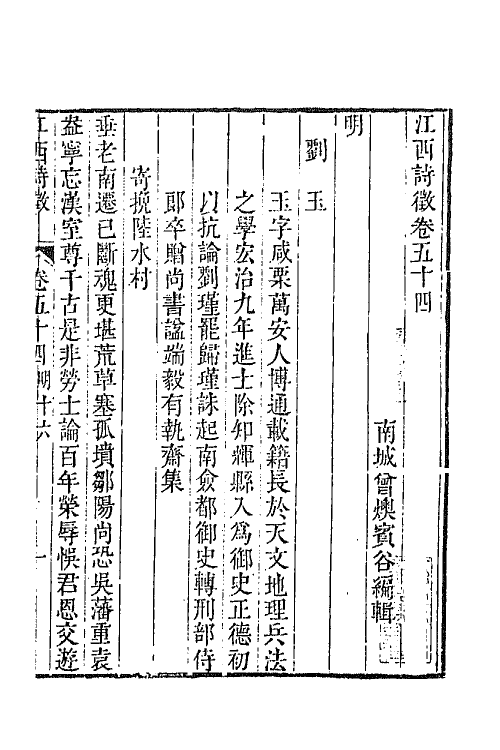 江西詩徵卷五十四
南城曾燠賓谷編輯
明
劉玉
玉字咸栗萬安人博通載籍長於天文地理兵法
之學宏治九年進士除知輝縣入爲御史正德初
以抗論劉瑾罷歸瑾誅起南僉都御史轉刑部侍
郎卒贈尚書諡端毅有執齋集
寄挽陸水村
垂老南遷已斷魂更堪荒草塞孤墳鄒陽尚恐吳藩重袁
盎寧忘漢室尊千古是非勞士論百年榮辱悞君恩交遊
江西詩徵
卷五十四 明十六
一